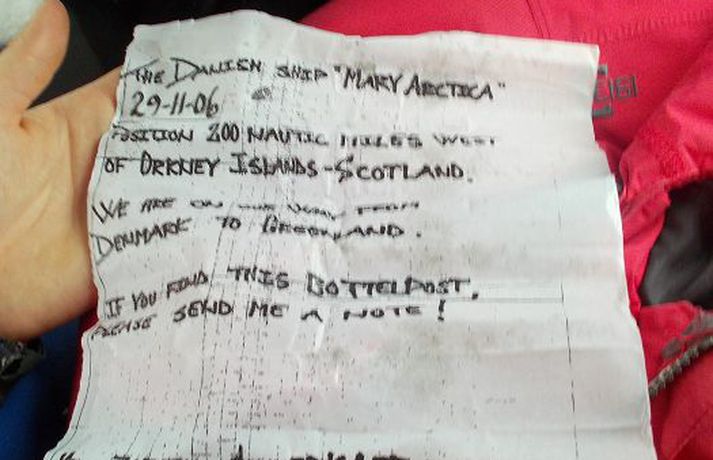 THE DANISH SHIP "MARY ARCTICA"
29-11-06
POSITION 200 NAUTIC MILES WEST
OF ORKNEY ISLANDS-SCOTLAND.
WE ARE ON OUR WAY FROM
DENMARK TO GREENLAND.
IF YOU FIND THIS BOTTELPOST,
PLEASE SEND ME A NOTE!